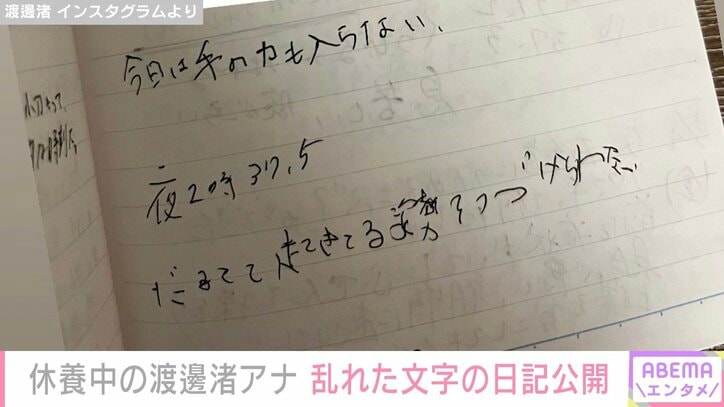 渡邊渚 インスタグラムより
今日は手の力も入らない、
夜2時 37.5
だるくて起きてる姿勢もつづけられない
休養中の渡邊渚アナ 乱れた文字の日記公開
ABEMA
\エンタメ/